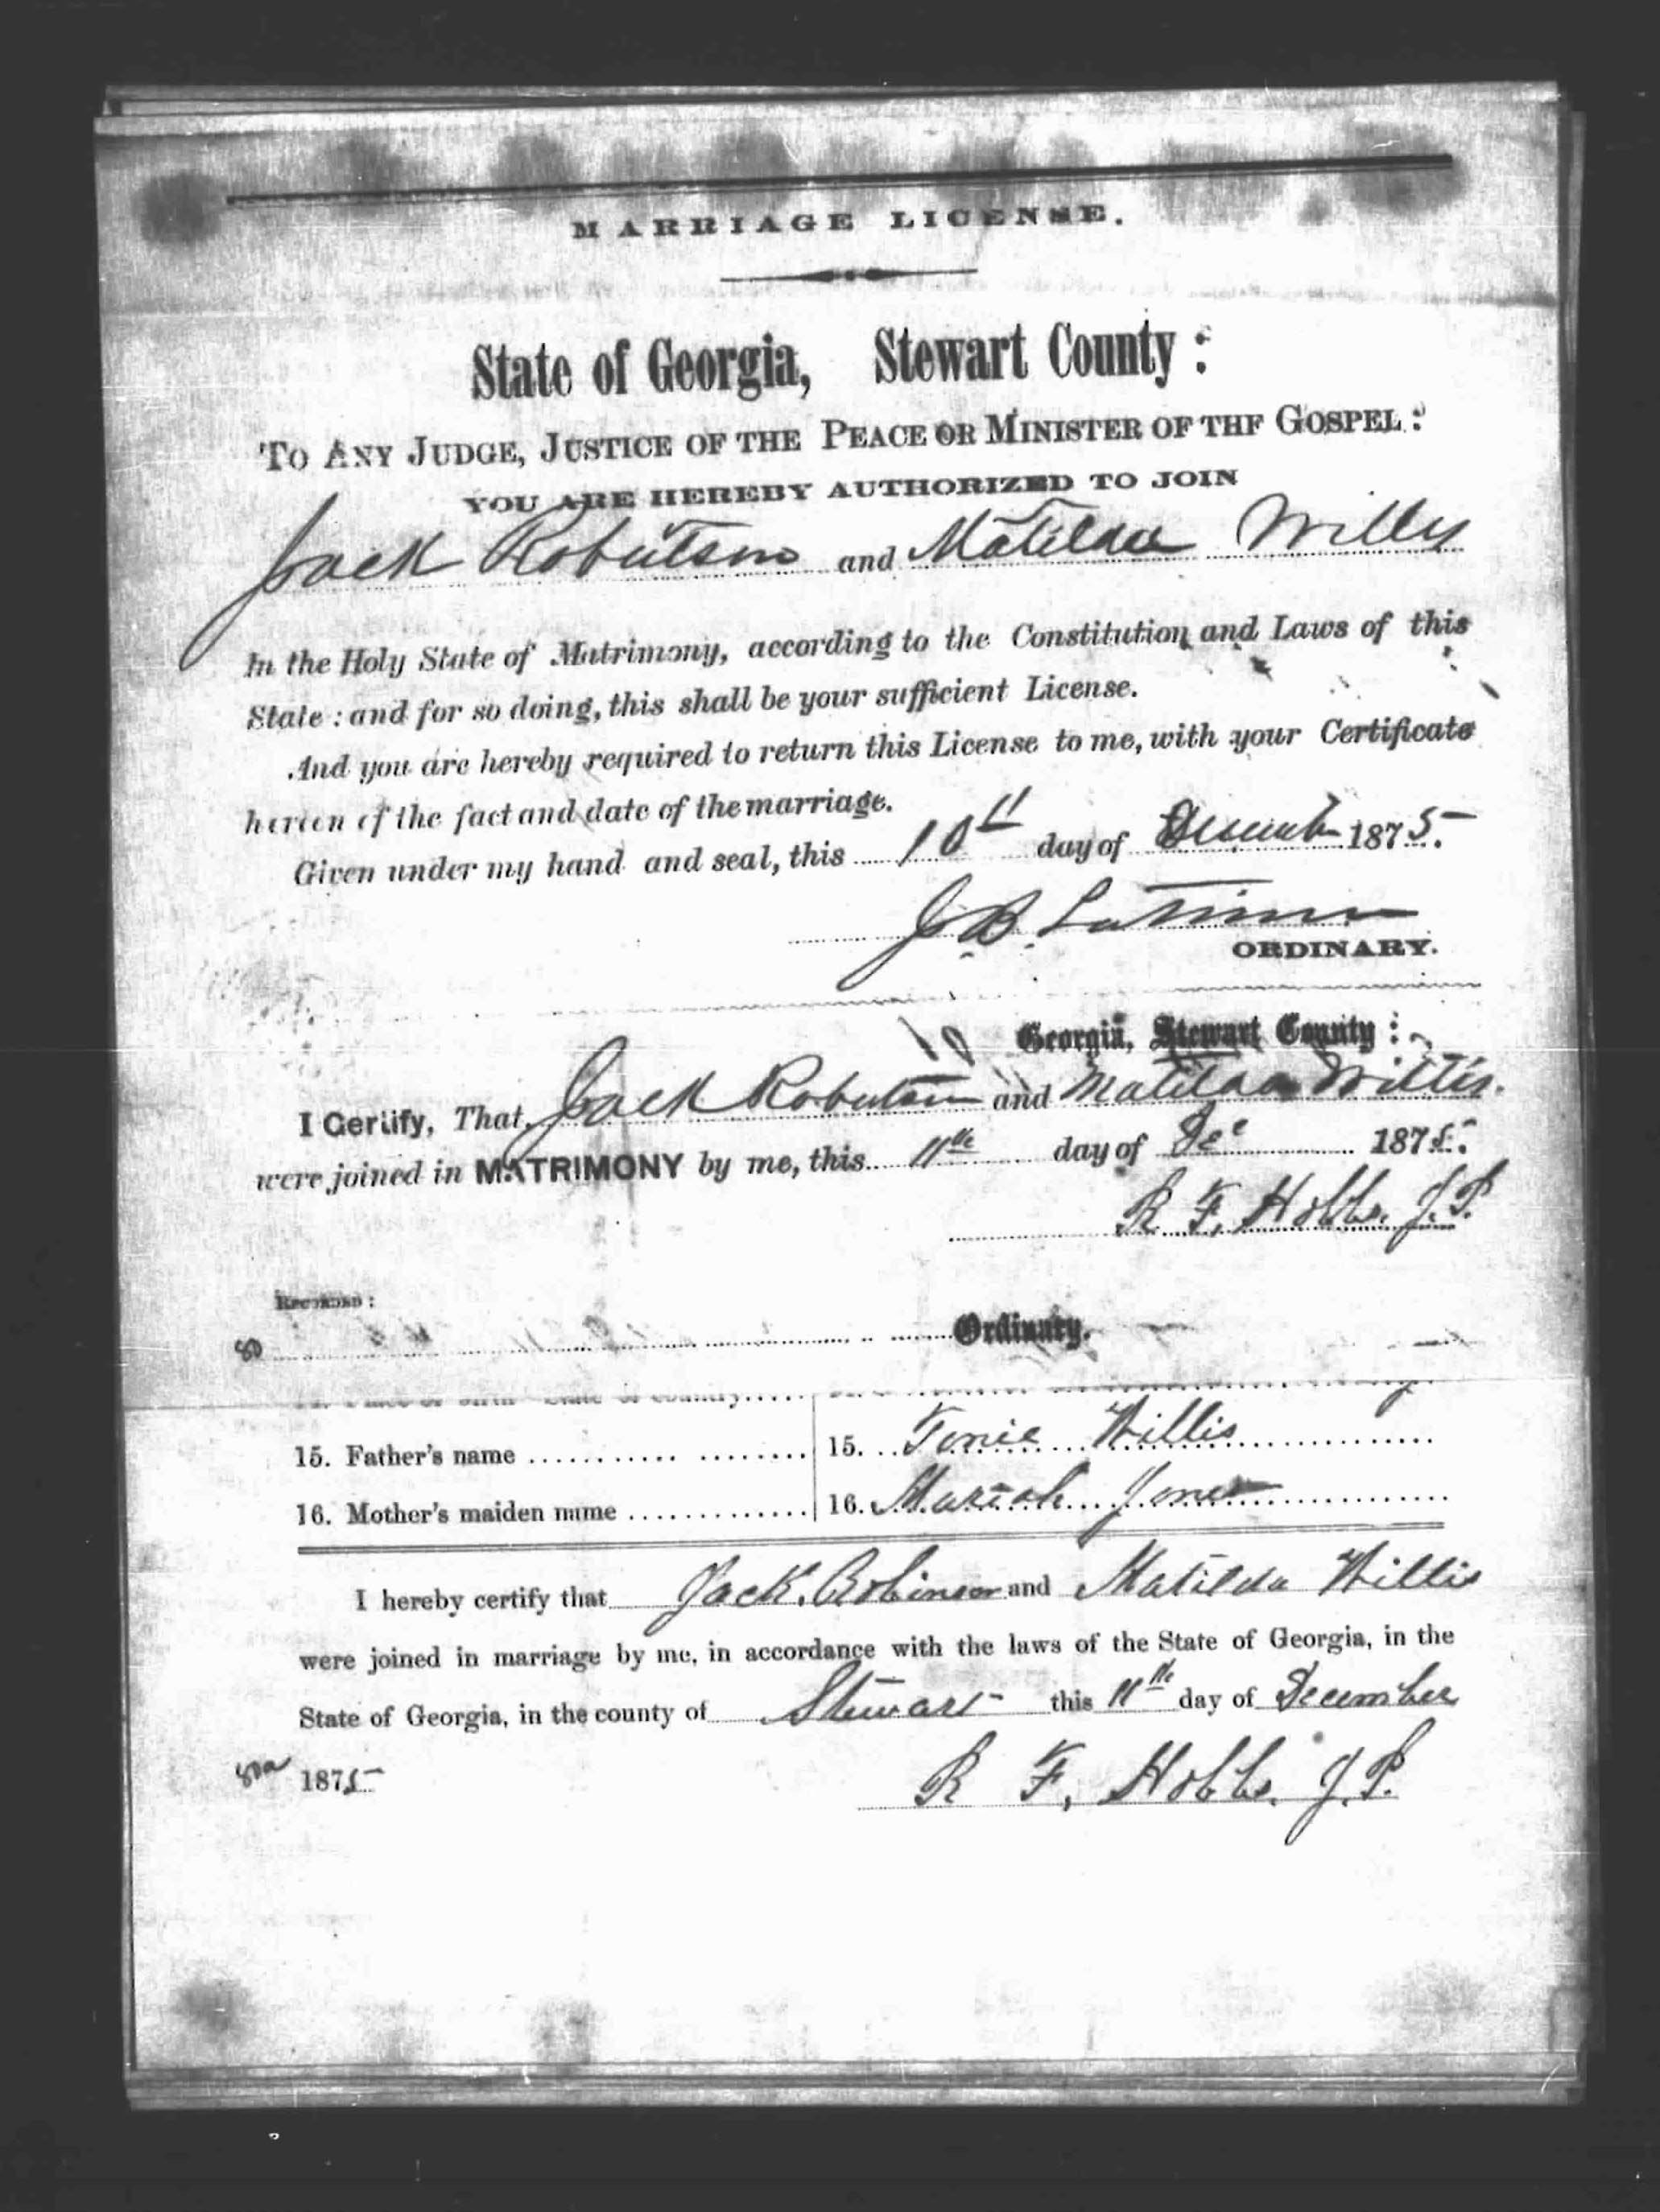 MARRIAGE LICENSE.
State of Georgia, Stewart County :
TO ANY JUDGE, JUSTICE OF THE PEACE OR MINISTER OF THE GOSPEL :
YOU ARE HEREBY AUTHORIZED TO JOIN
Jack Robertson and Matilda Willis
In the Holy State of Matrimony, according to the Constitution and Laws of this
State : and for so doing, this shall be your sufficient License.
And you are hereby required to return this License to me, with your Certificate
hereon of the fact and date of the marriage.
Given under my hand and seal, this 10th day of December 1875.
J. B. Latimer
ORDINARY.
Georgia, Stewart County :
I Certify, That Jack Robertson and Matilda Willis.
were joined in MATRIMONY by me, this 11th day of Dec 1875.
R F, Hobbs, J.P.
RECORDED :
80 Ordinary.
15. Father's name 15. Tonie Willis
16. Mother's maiden name 16. Mariah Jones
I hereby certify that Jack. Robinson and Matilda Willis
were joined in marriage by me, in accordance with the laws of the State of Georgia, in the
State of Georgia, in the county of Stewart this 11th day of December
80a 1875
R F, Hobbs. J.P.